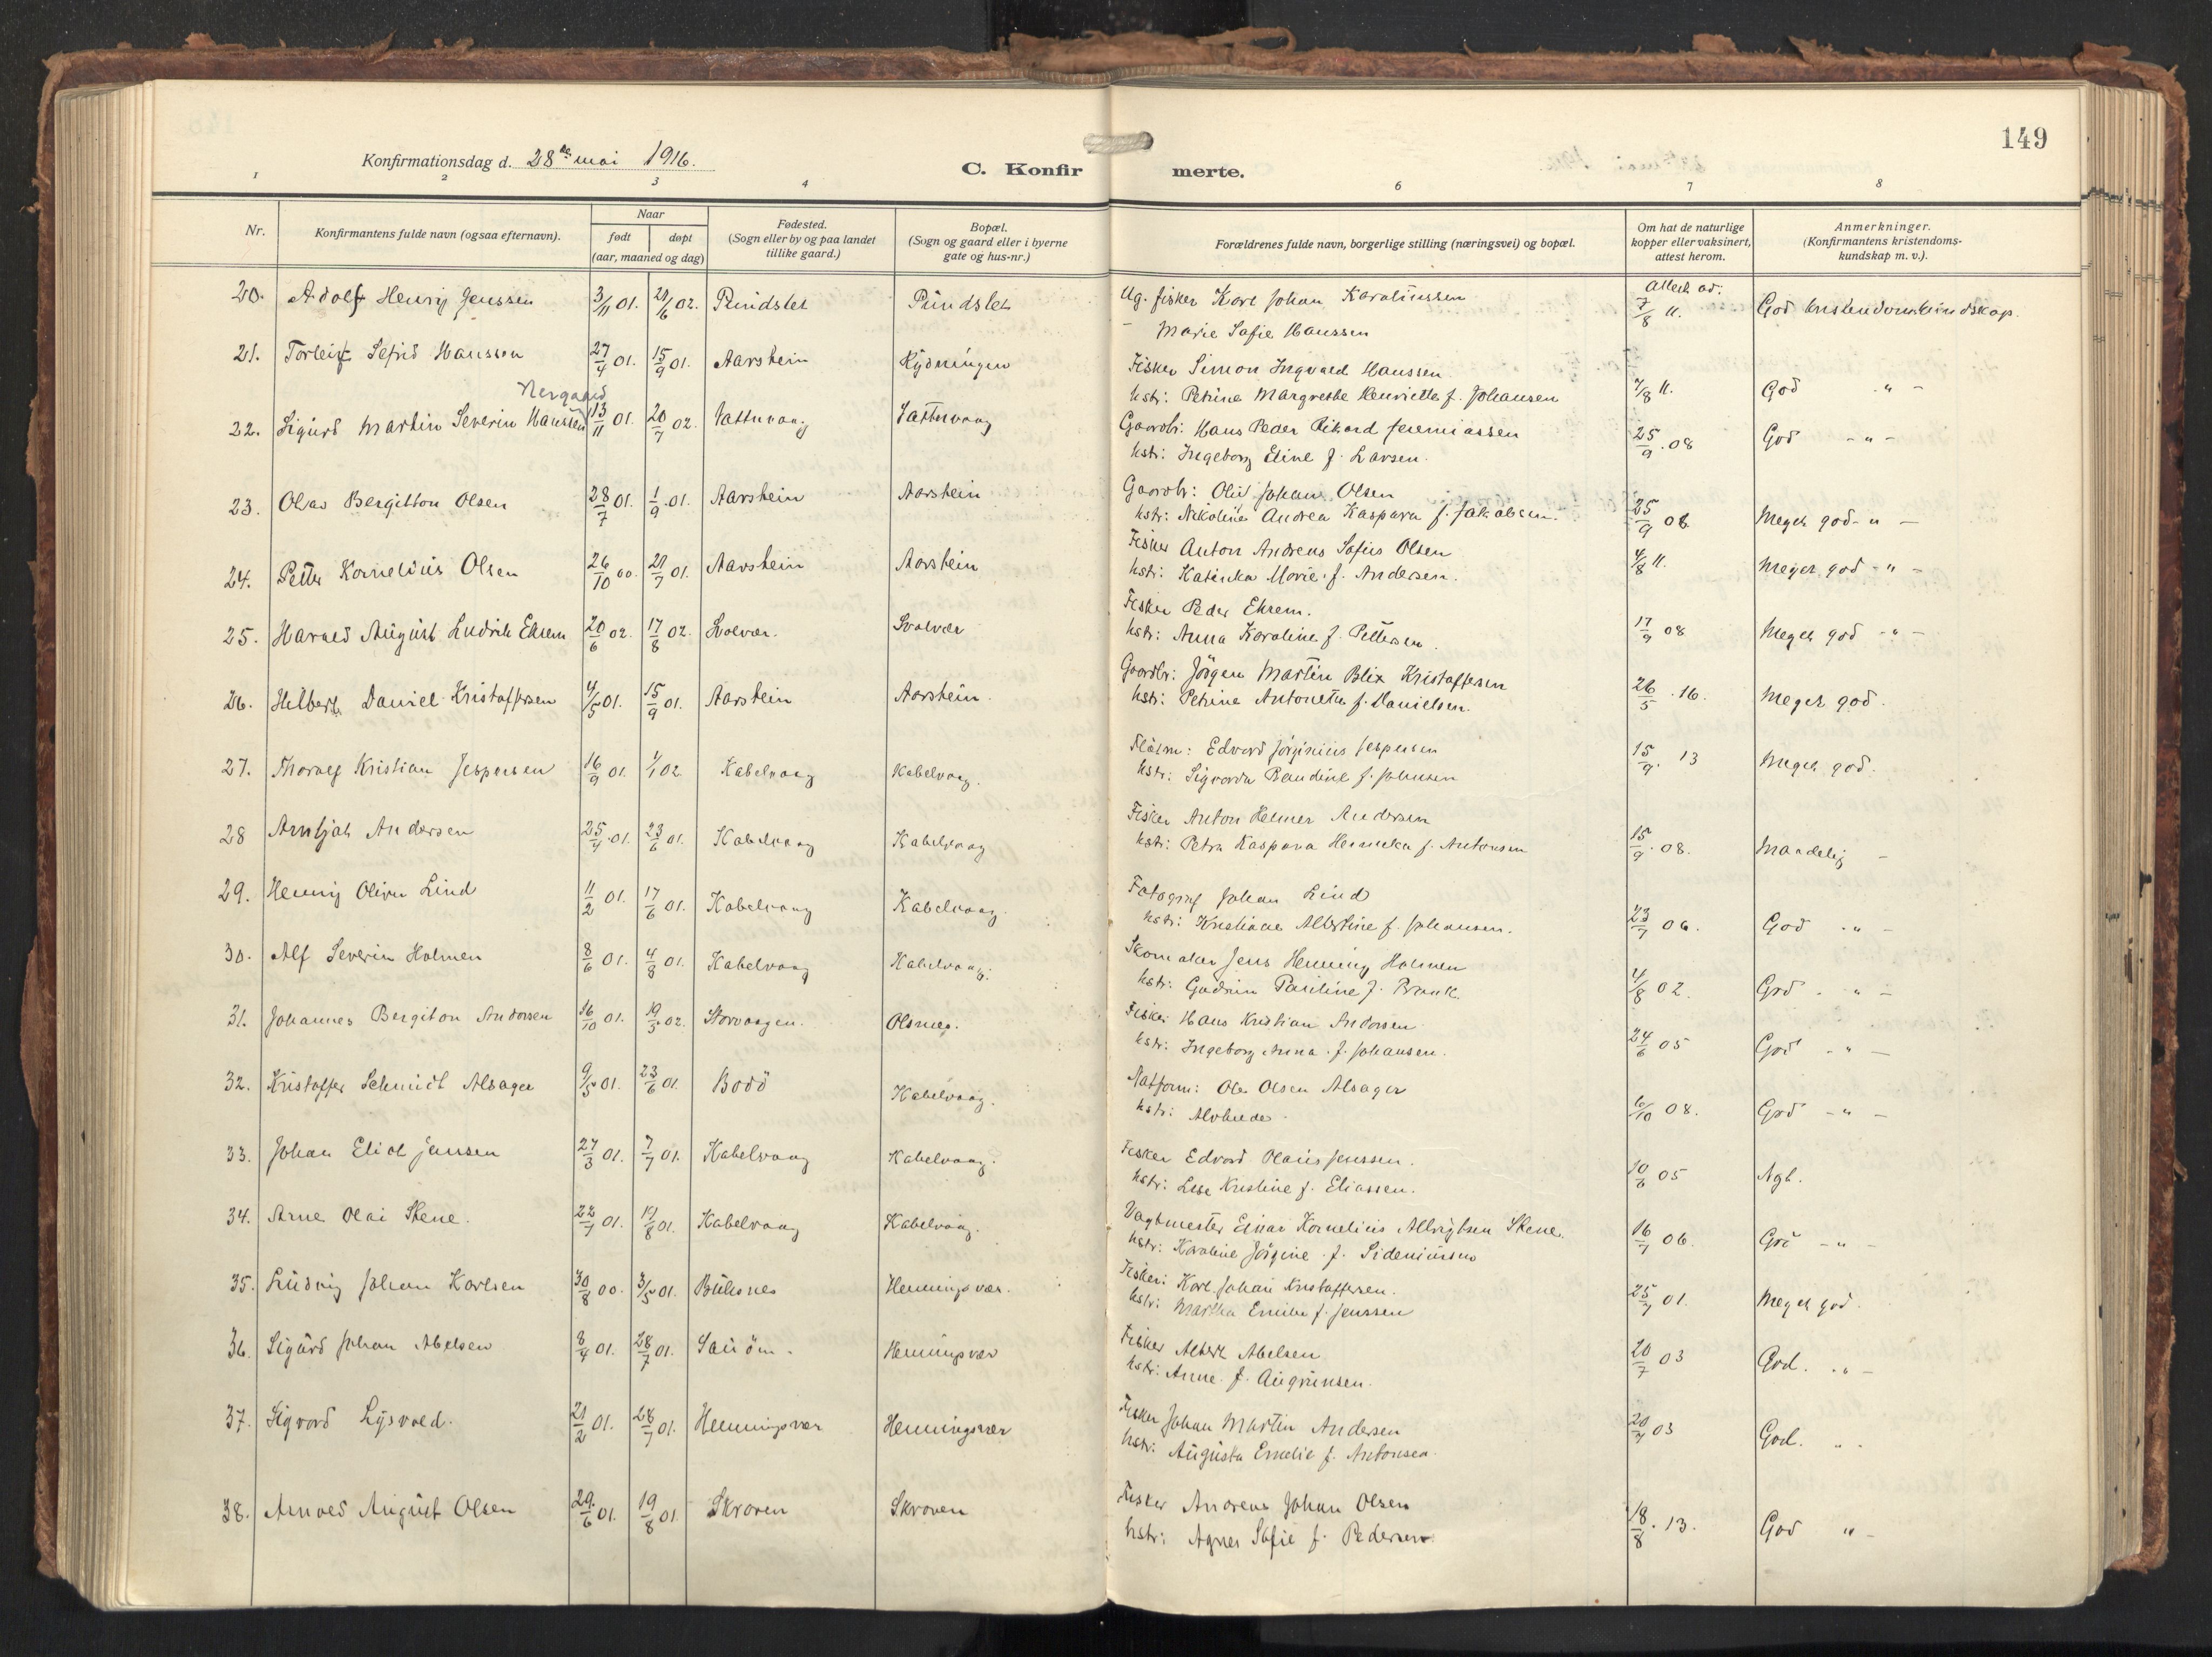 149
Konfirmationsdag d. 28de mai 1916.
C. Konfirmerte.
1 2 3 4 5 6 7 8
Nr.
Konfirmantens fulde navn (ogsaa efternavn).
Naar
født døpt
(aar, maaned og dag)
Fødested.
(Sogn eller by og paa landet
tillike gaard.)
Bopæl.
(Sogn og gaard eller i byerne
gate og hus-nr.)
Forældrenes fulde navn, borgerlige stilling (næringsvei) og bopæl.
Om hat de naturlige
kopper eller vaksinert,
attest herom.
Anmerkninger.
(Konfirmantens kristendoms-
kundskap m. v.).
20. Adolf Henrij Jenssen 3/11 01. 21/6 02. Rindslet Rindslet Ug. fisker Karl Johan Karolinssen attest ad: 7/8 11. God kristendomskundskap.
– Marie Sofie Hanssen
21. Torleif Sefrid Hanssen 27/4 01. 15/9 01. Aarstein Rydningen Fisker Simon Ingvald Hanssen 7/8 11. God – " –
hstr: Petrine Margrethe Henriette f. Johansen
Nergaard
22. Sigurd Martin Severin Hanssen 13/11 01. 20/7 02. Vatturvaag Vatturvaag Gaardbr: Hans Peder Rikard Jeremiassen 25/9 .08 God – " –
hstr: Ingeborg Eline f. Larsen.
23. Olav Bergitton Olsen 28/7 01. 1/9 .01. Aarstein Aarstein Gaardbr: Oluf Johan Olsen 25/9 08 Meget god – " –
hstr: Nikoline Andrea Kaspara f. Jakobsen.
24. Petter Kornelius Olsen 26/10 00. 21/7 01. Aarstein Aarstein Fisker Anton Andreas Sofus Olsen 4/8 11. Meget god – " –
hstr: Katinka Marie f. Andersen.
25. Harald August Ludvik Ekrem 20/6 02. 17/8 02. Svolvær. Svolvær Fisker Peder Ekrem. 17/9 08 Meget god – " –
hstr: Anna Karoline f. Pettersen.
26. Hilbert Daniel Kristoffersen 4/5 01. 15/9 01. Aarstein Aarstein. Gaardbr: Jörgen Martin Blix Kristoffersen 26/5 .16. Meget god.
hstr: Petrine Antonette f. Danielsen.
27. Thoralf Kristian Jespersen 16/9 01. 1/1 02. Kabelvaag Kabelvaag. Edvard Jörginius Jespersen 15/9. 13 Meget god.
hstr: Sigvarda Baudine f. Johnsen
28 Arnljot Andersen 25/4 .01. 23/6 01. Kabelvaag Kabelvaag Fisker Anton Helmer Andersen 15/9 .08. Maadelig –
hstr: Petra Kaspara Henrikka f. Antonsen
29. Henrij Oliver Lind 11/2 01. 17/6 01. Kabelvaag Kabelvaag. Fotograf Johan Lind 23/7 06. God . " –
hstr: Kristiane Albertine f. Johansen.
30. Alf Severin Holmen 8/6 01. 4/8 01. Kabelvaag Kabelvaag. Skomaker Jens Henning Holmen 4/8 02. God . " –
hstr: Gudrun Pauline f. Brank.
31. Johannes Bergiton Andersen 16/10 01. 19/5 02. Storvaagen. Olsnes. Fisker Hans Kristian Andersen 24/6 05 God – " –
hstr: Ingeborg Anna f. Johansen.
32. Kristoffer Schmidt Alsager 9/5 01. 23/6 01. Bodö Kabelvaag. Ole Olsen Alsager 6/10 08. God – " –
hstr: Alvhilde.
33. Johan Eliot Jenssen 27/3 01. 7/7 01. Kabelvaag Kabelvaag. Fisker Edvard Olaus Jenssen. 10/6 05 Ngl.
hstr: Lise Kristine f. Eliassen.
34. Arne Olai Skene. 22/7 01. 19/8 01. Kabelvaag Kabelvaag. Vagtmester Einar Kornelius Albrigtsen Skene. 16/7 06. God – " –
hstr: Karoline Jörgine f. Sideniussen
35. Ludvig Johan Karlsen 30/8 00. 3/5 01. Buksnes Henningsvær. Fisker: Karl Johan Kristoffersen. 25/7 01. Meget god.
hstr: Martha Emilie f. Jenssen
36. Sigurd Johan Abelsen 8/4 01. 28/7 01. Henningsvær Fisker Albert Abelsen 20/7 03 God. . " –
hstr: Anne f. Augunsen.
37. Sigvard Lysvold. 21/2 01. 28/7 01. Henningsvær Henningsvær Fisker Johan Martin Andersen 20/7 03 God. " .
hstr: Augusta Emelie f. Antonsen.
38. Arnold August Olsen 29/6 01. 19/8 01. Skroven Skroven Fisker Andreas Johan Olsen 18/8. 13. God " –
hstr: Agnes Sofie f. Pedersen.